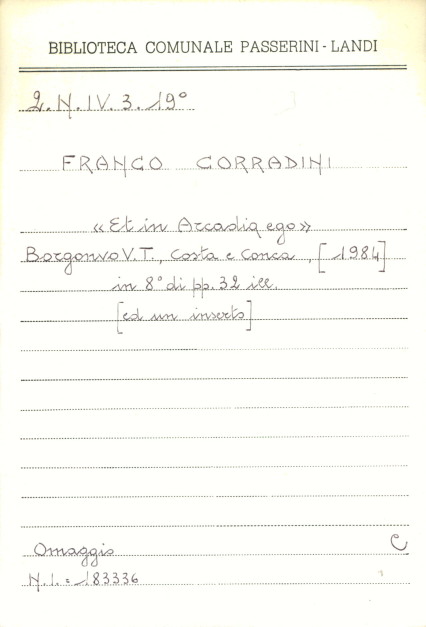 BIBLIOTECA COMUNALE PASSERINI-LANDI
2.N.IV.3.19°
FRANCO CORRADINI
«Et in Arcadia ego»
Borgonovo V.T., Costa e Conca, [1984]
in 8° di pp. 32 ill.
[ed un inserto]
Omaggio C
N.I. = 183336